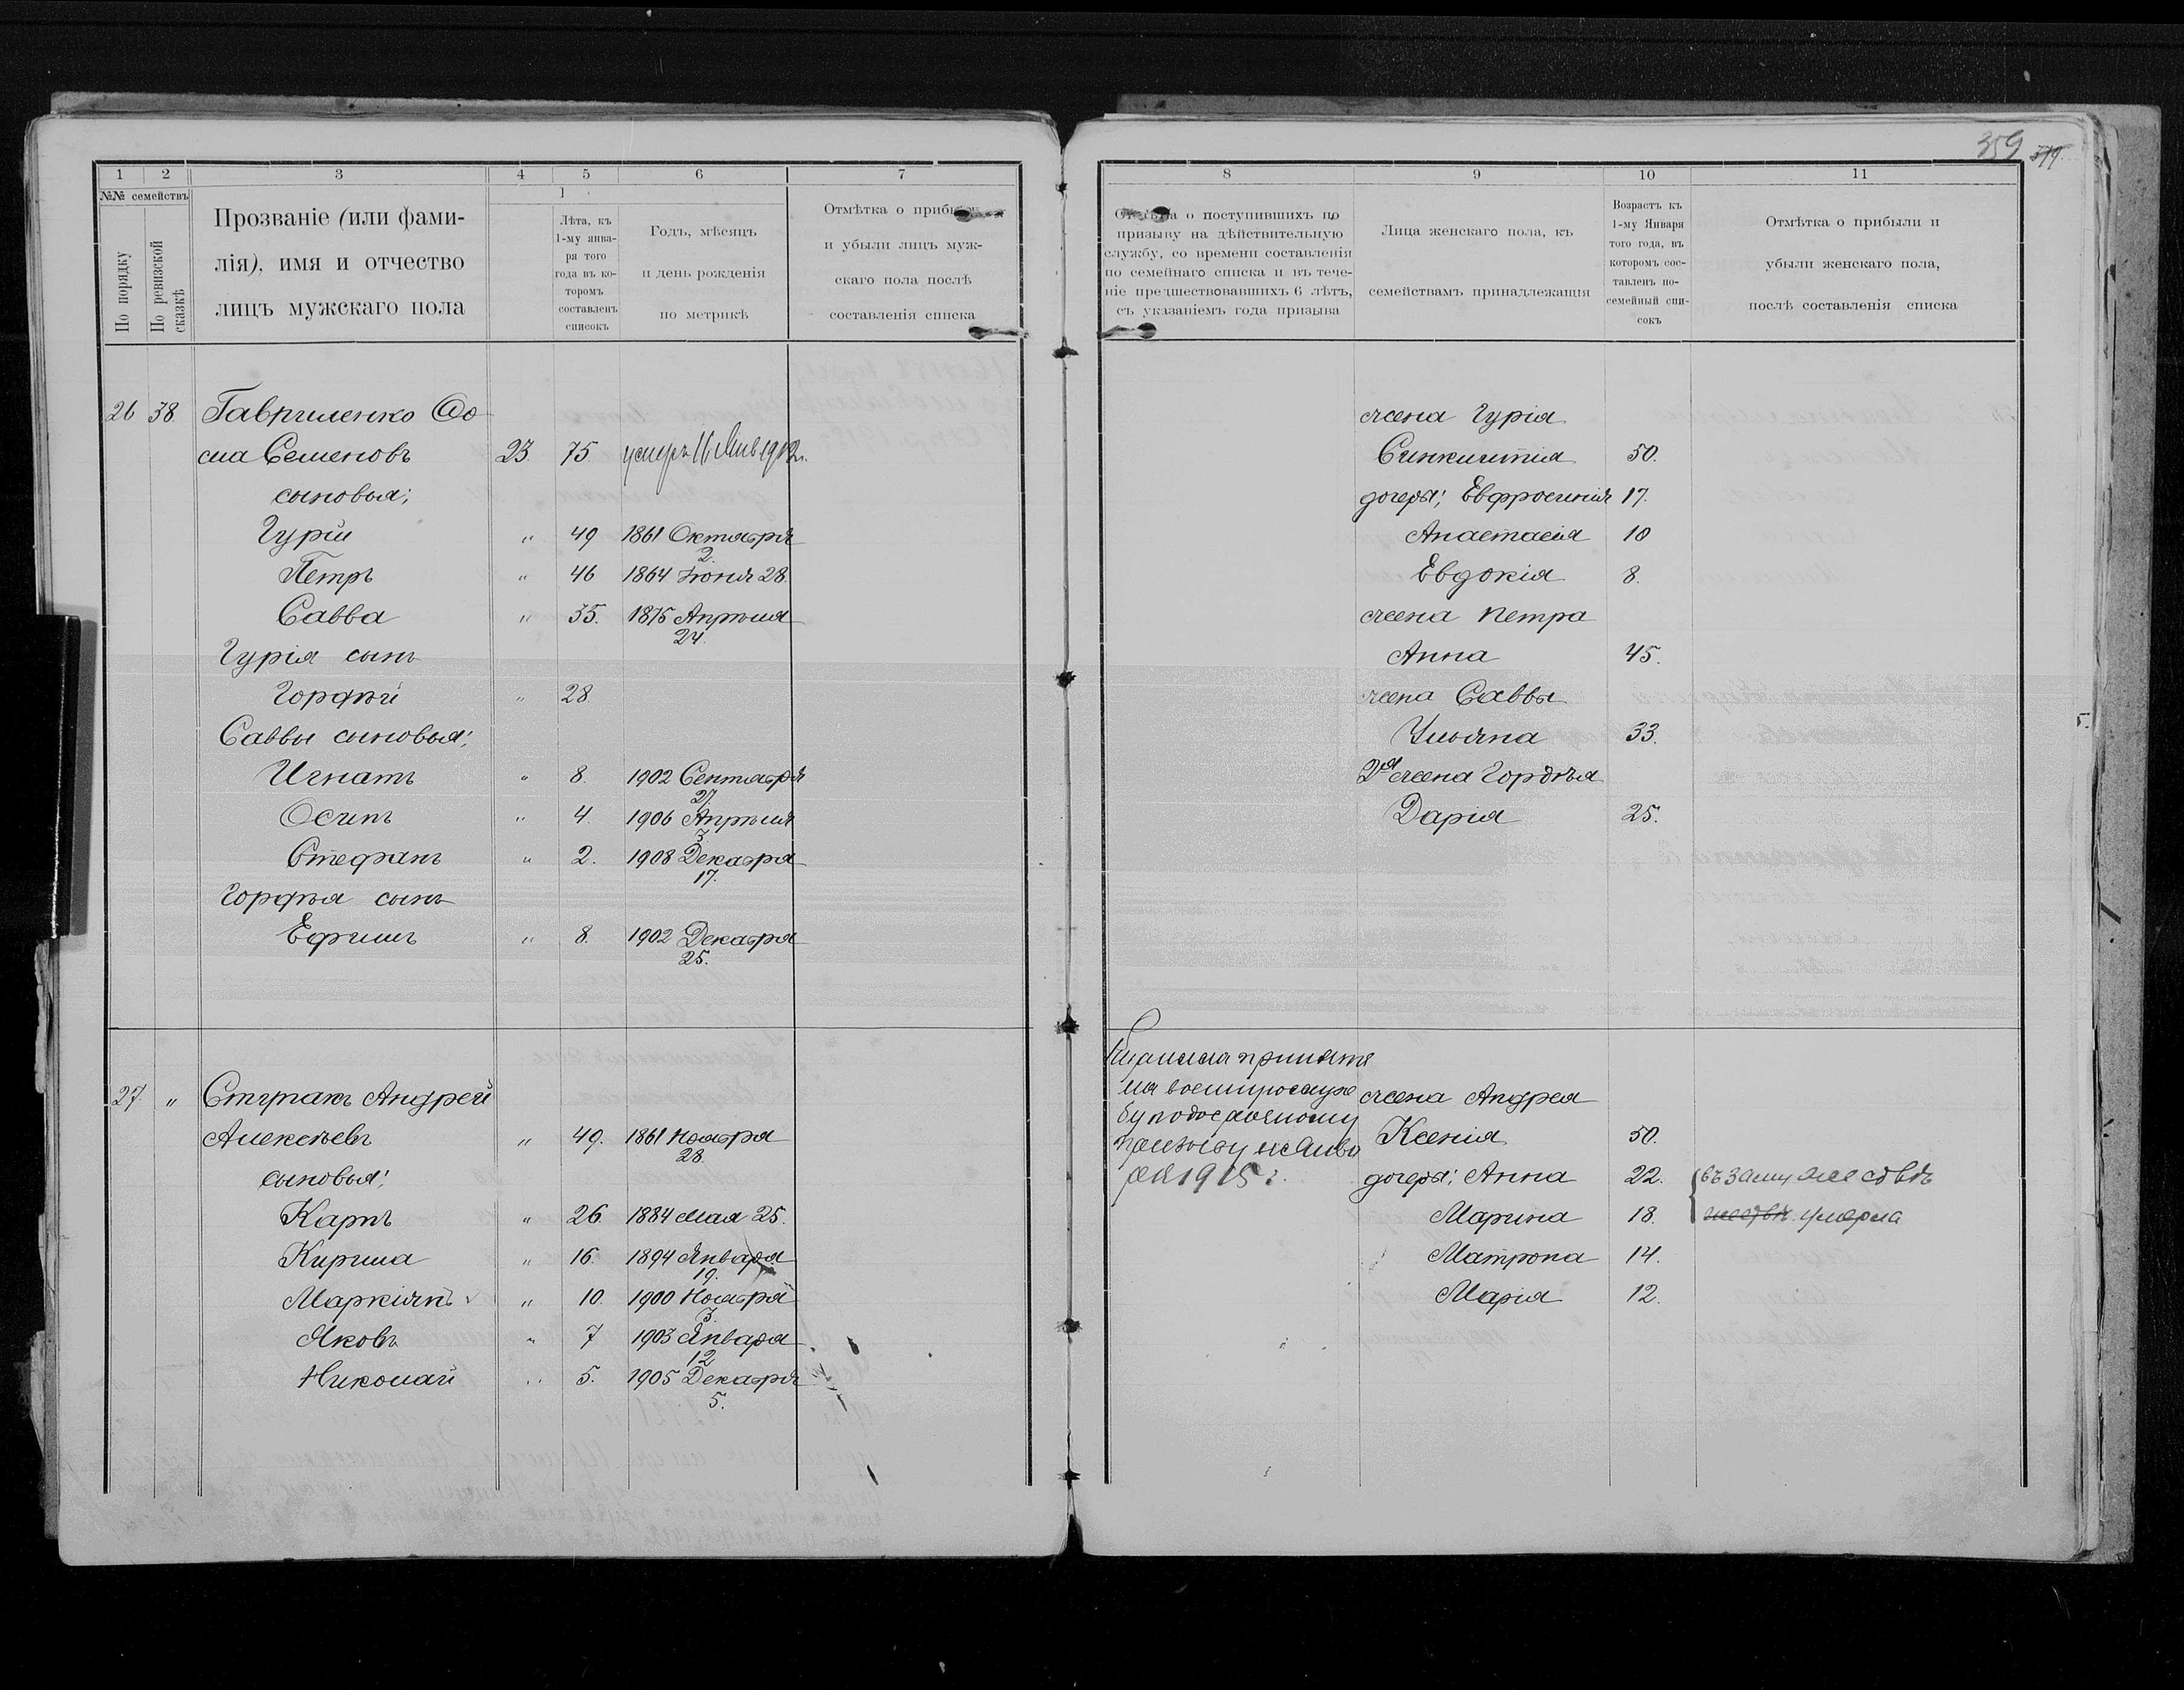 359 379.
1 2 3 4 5 6 7
№№ семействъ
По порядку
По ревизской сказкѣ
Прозваніе (или фами-
лія), имя и отчество
лицъ мужскаго пола
1
Лѣта, къ
1-му янва-
ря того
года въ ко-
торомъ
составленъ
списокъ
Годъ, мѣсяцъ
и день рожденія
по метрикѣ
Отмѣтка о прибы
и убыли лицъ муж-
скаго пола послѣ
составленія списка
8 9 10 11
о поступившихъ по
призыву на дѣйствительную
службу, со времени составленія
по семейнаго списка и въ тече-
ніе предшествовавшихъ 6 лѣтъ,
съ указаніемъ года призыва
Лица женскаго пола, къ
семействамъ принадлежащія
Возрастъ къ
1-му Января
того года, въ
которомъ сос-
тавленъ по-
семейный спи-
сокъ
Отмѣтка о прибыли и
убыли женскаго пола,
послѣ составленія списка
26 38 Гавриленко Ѳо
ма Семеновъ 23. 75 умеръ 16 Янв 1912г.
сыновья;
Гурій " 49 1861 Октября
2.
Петръ " 46 1864 Іюня 28.
Савва " 35. 1875 Апрѣля
24.
Гурія сынъ
Гордѣй " 28.
Саввы сыновья;
Игнатъ " 8. 1902 Сентября
27.
Осипъ " 4. 1906 Апрѣля
3.
Стефанъ " 2. 1908 Декабря
17.
Гордѣя сынъ
Ефимъ " 8. 1902 Декабря
25.
жена Гурія
Синклитія 50.
дочеры; Евфросинія 17.
Анастасія 10
Евдокія 8.
жена Петра
Анна 45.
жена Саввы
Ульяна 33.
2я жена Гордѣя
Дарія 25.
27. " Стрпакъ Андрей
Алексѣевъ " 49. 1861 Ноября
28.
сыновья;
Карпъ " 26. 1884 Мая 25.
Кирила " 16. 1894 Января
19.
Маркіянъ " 10. 1900 Ноября
3.
Яковъ " 7 1903 Января
12
Николай " 5. 1905 Декабря
5.
Кирилла принятъ
на военную служ
бу по досрочному
призыву Янва
ря 1915 г.
жена Андрея
Ксенія 50.
дочеры; Анна 22. въ замужествѣ
Марина 18. умерла
Матрона 14.
Марія 12.